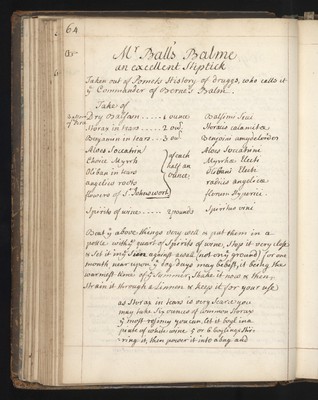 64
Mr. Balls Balme
an excellent Stiptick
Taken out of Pomets History of druggs, who calls it
ye Commander of Berne's Balm.
Take of
Dry Balsam ..... 1 ounce Balsimu Sicu
Storax in tears ..... 2 ou; Storax calamitae
Benjamin in tears .. 3 ou Benjoin amygdeloides
Aloes Soccatrin Aloes Soccatrine
Choice Myrrh of each Myrrhae Electi
Oliban in tears half an Olibani Electi
angelico roots ounce; radicis angelicae
flowers of St Johnswort florum Hyperici
Spirits of wine ..... 2 pounds Spiritus vini
Beat ye above things very well & put them in a
pottle with ye quart of Spirits of wine, Stop it very close
& Set it in ye Sun against a wall (not on ye ground) for one
month near upon, ye dog days may be best, it being the
warmest time of ye Summer, Shake it now & then,
Strain it through a Linnen & keep it for your use
as Storax in tears is very scarce you
may take Six ounces of Common Storax
ye most rosiney you can, let it boyl in a
pinte of white wine 5 or 6 boylings stir-
ring it, then power it into a bag and